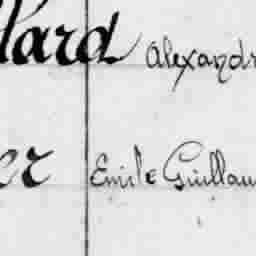 llard Alexandr
er Emile Guillau